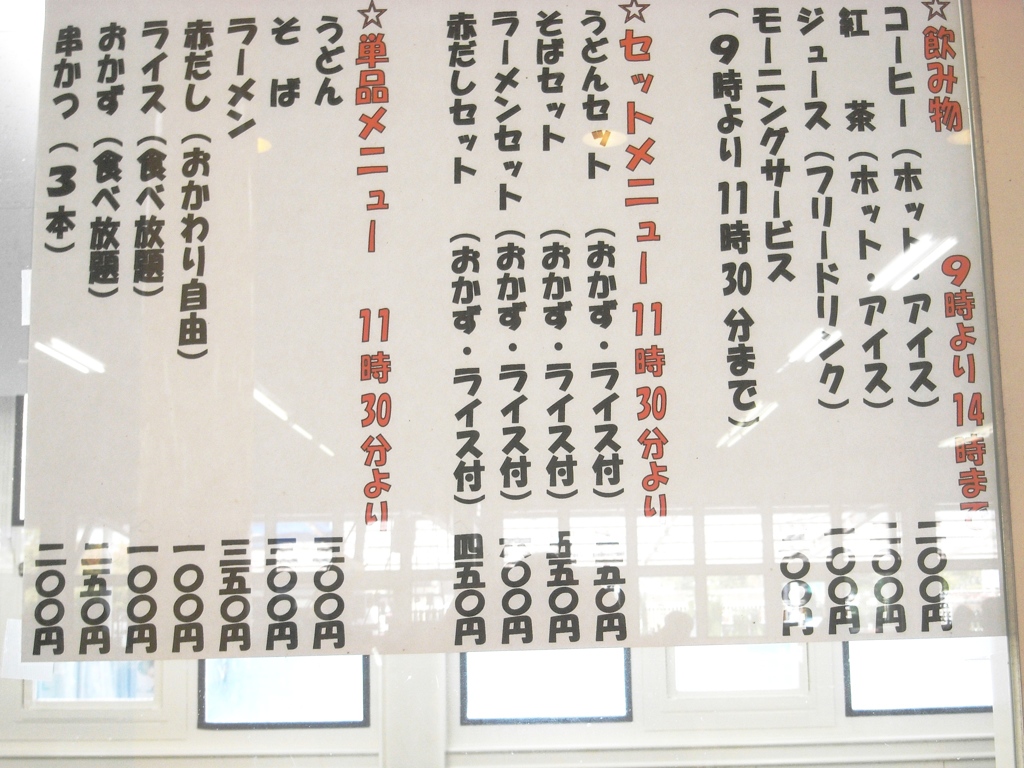 ☆飲み物 9時より14時まで
コーヒー(ホット・アイス) 二〇〇円
紅茶(ホット・アイス)
ジュース(フリードリンク)
モーニングサービス
(9時より11時30分まで)
☆セットメニュー 11時30分より
うどんセット(おかず・ライス付)
そばセット(おかず・ライス付) 五五〇円
ラーメンセット(おかず・ライス付) 六〇〇円
赤だしセット(おかず・ライス付) 四五〇円
☆単品メニュー 11時30分より
うどん 三〇〇円
そば 三〇〇円
ラーメン 三五〇円
赤だし(おかわり自由) 一〇〇円
ライス(食べ放題) 一〇〇円
おかず(食べ放題) 二五〇円
串かつ(3本) 二〇〇円